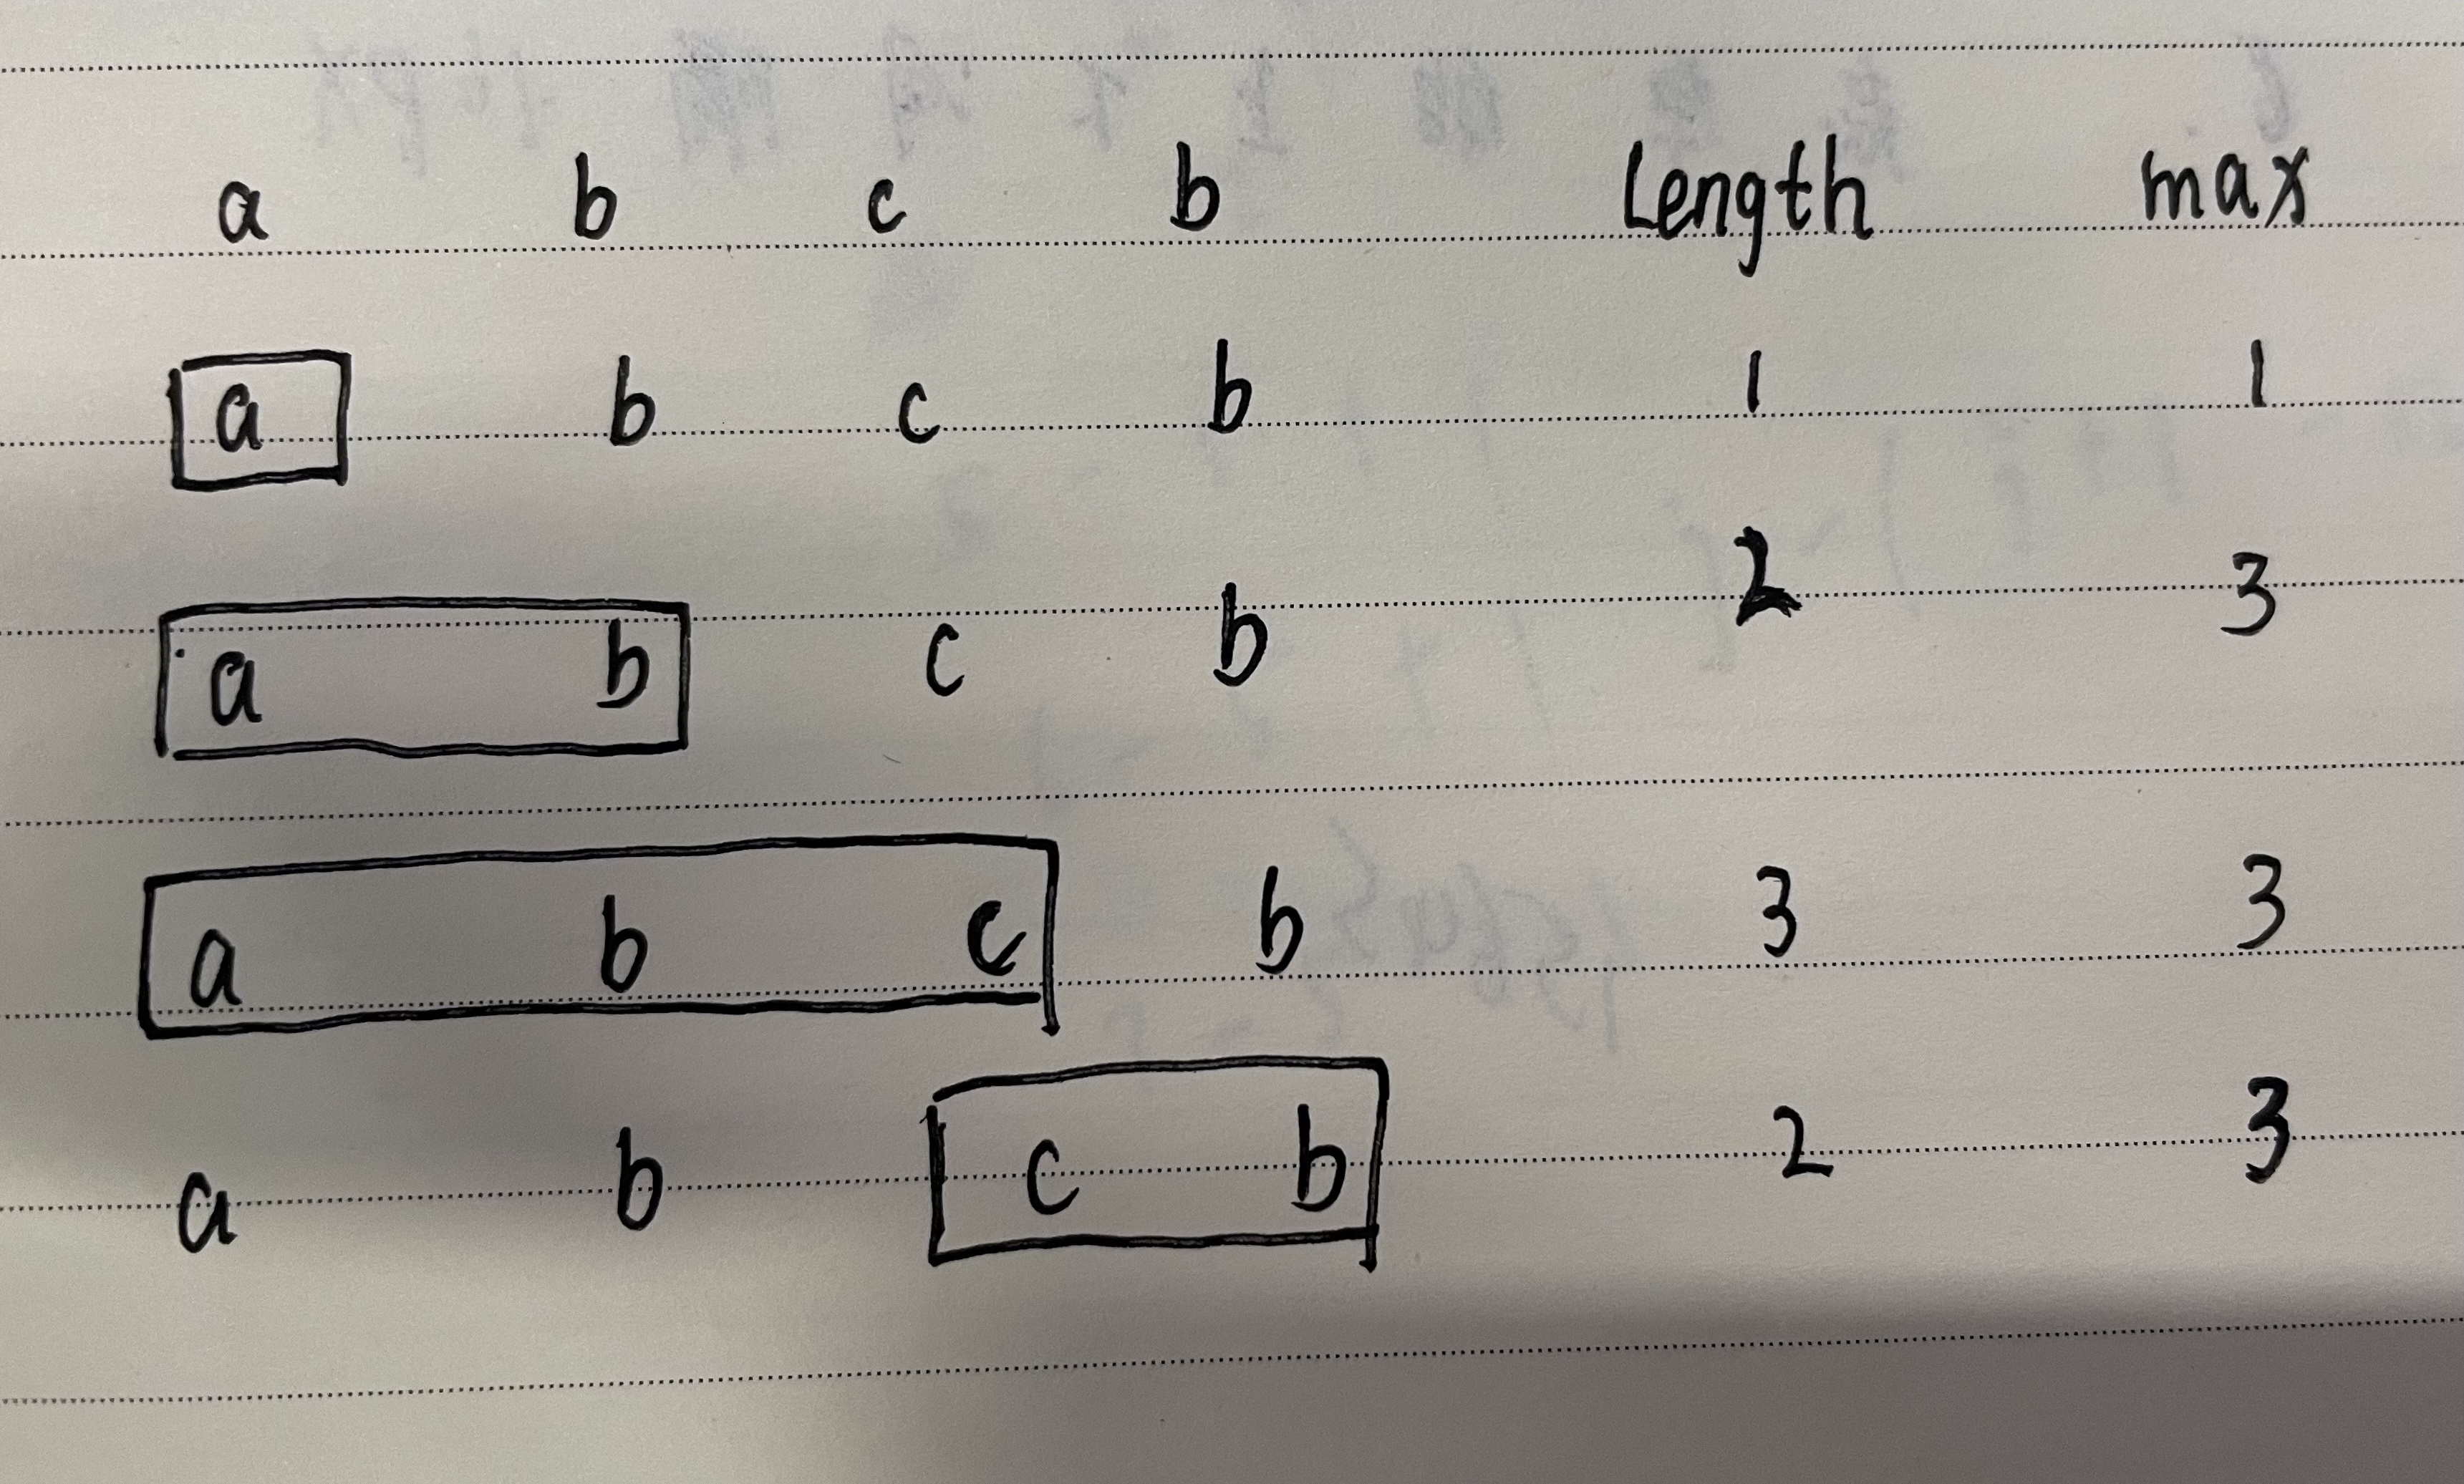 a b c b Length max
a b c b 1 1
a b c b 2 3
a b c b 3 3
a b c b 2 3